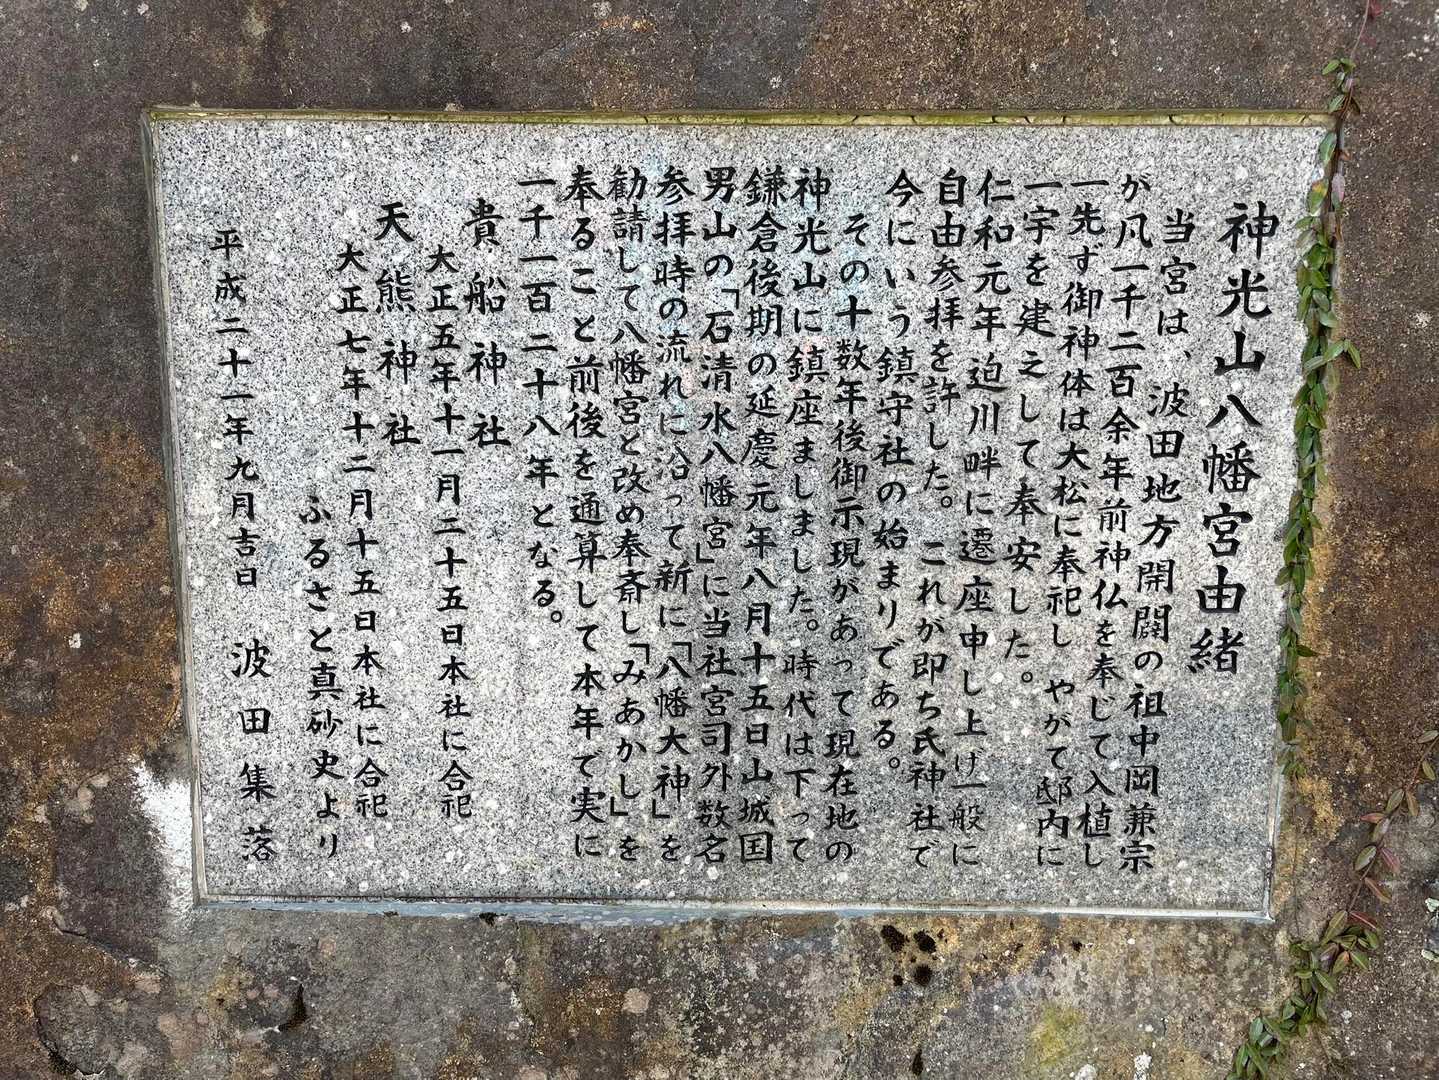 神光山八幡宮由緒
当宮は、波田地方開闢の祖中岡兼宗
が凡一千二百余年前神仏を奉じて入植し
一先ず御神体は大松に奉祀し やがて邸内に
一宇を建之して奉安した。
仁和元年迫川畔に遷座申し上げ一般に
自由参拝を許した。これが即ち氏神社で
今にいう鎮守社の始まりである。
その十数年後御示現があって現在地の
神光山に鎮座ましました。時代は下って
鎌倉後期の延慶元年八月十五日山城国
男山の「石清水八幡宮」に当社宮司外数名
参拝時の流れに沿って新に「八幡大神」を
勧請して八幡宮と改め奉斎し「みあかし」を
奉ること前後を通算して本年で実に
一千一百二十八年となる。
貴船神社
大正五年十一月二十五日本社に合祀
天熊神社
大正七年十二月十五日本社に合祀
ふるさと真砂史より
平成二十一年九月吉日 波田集落